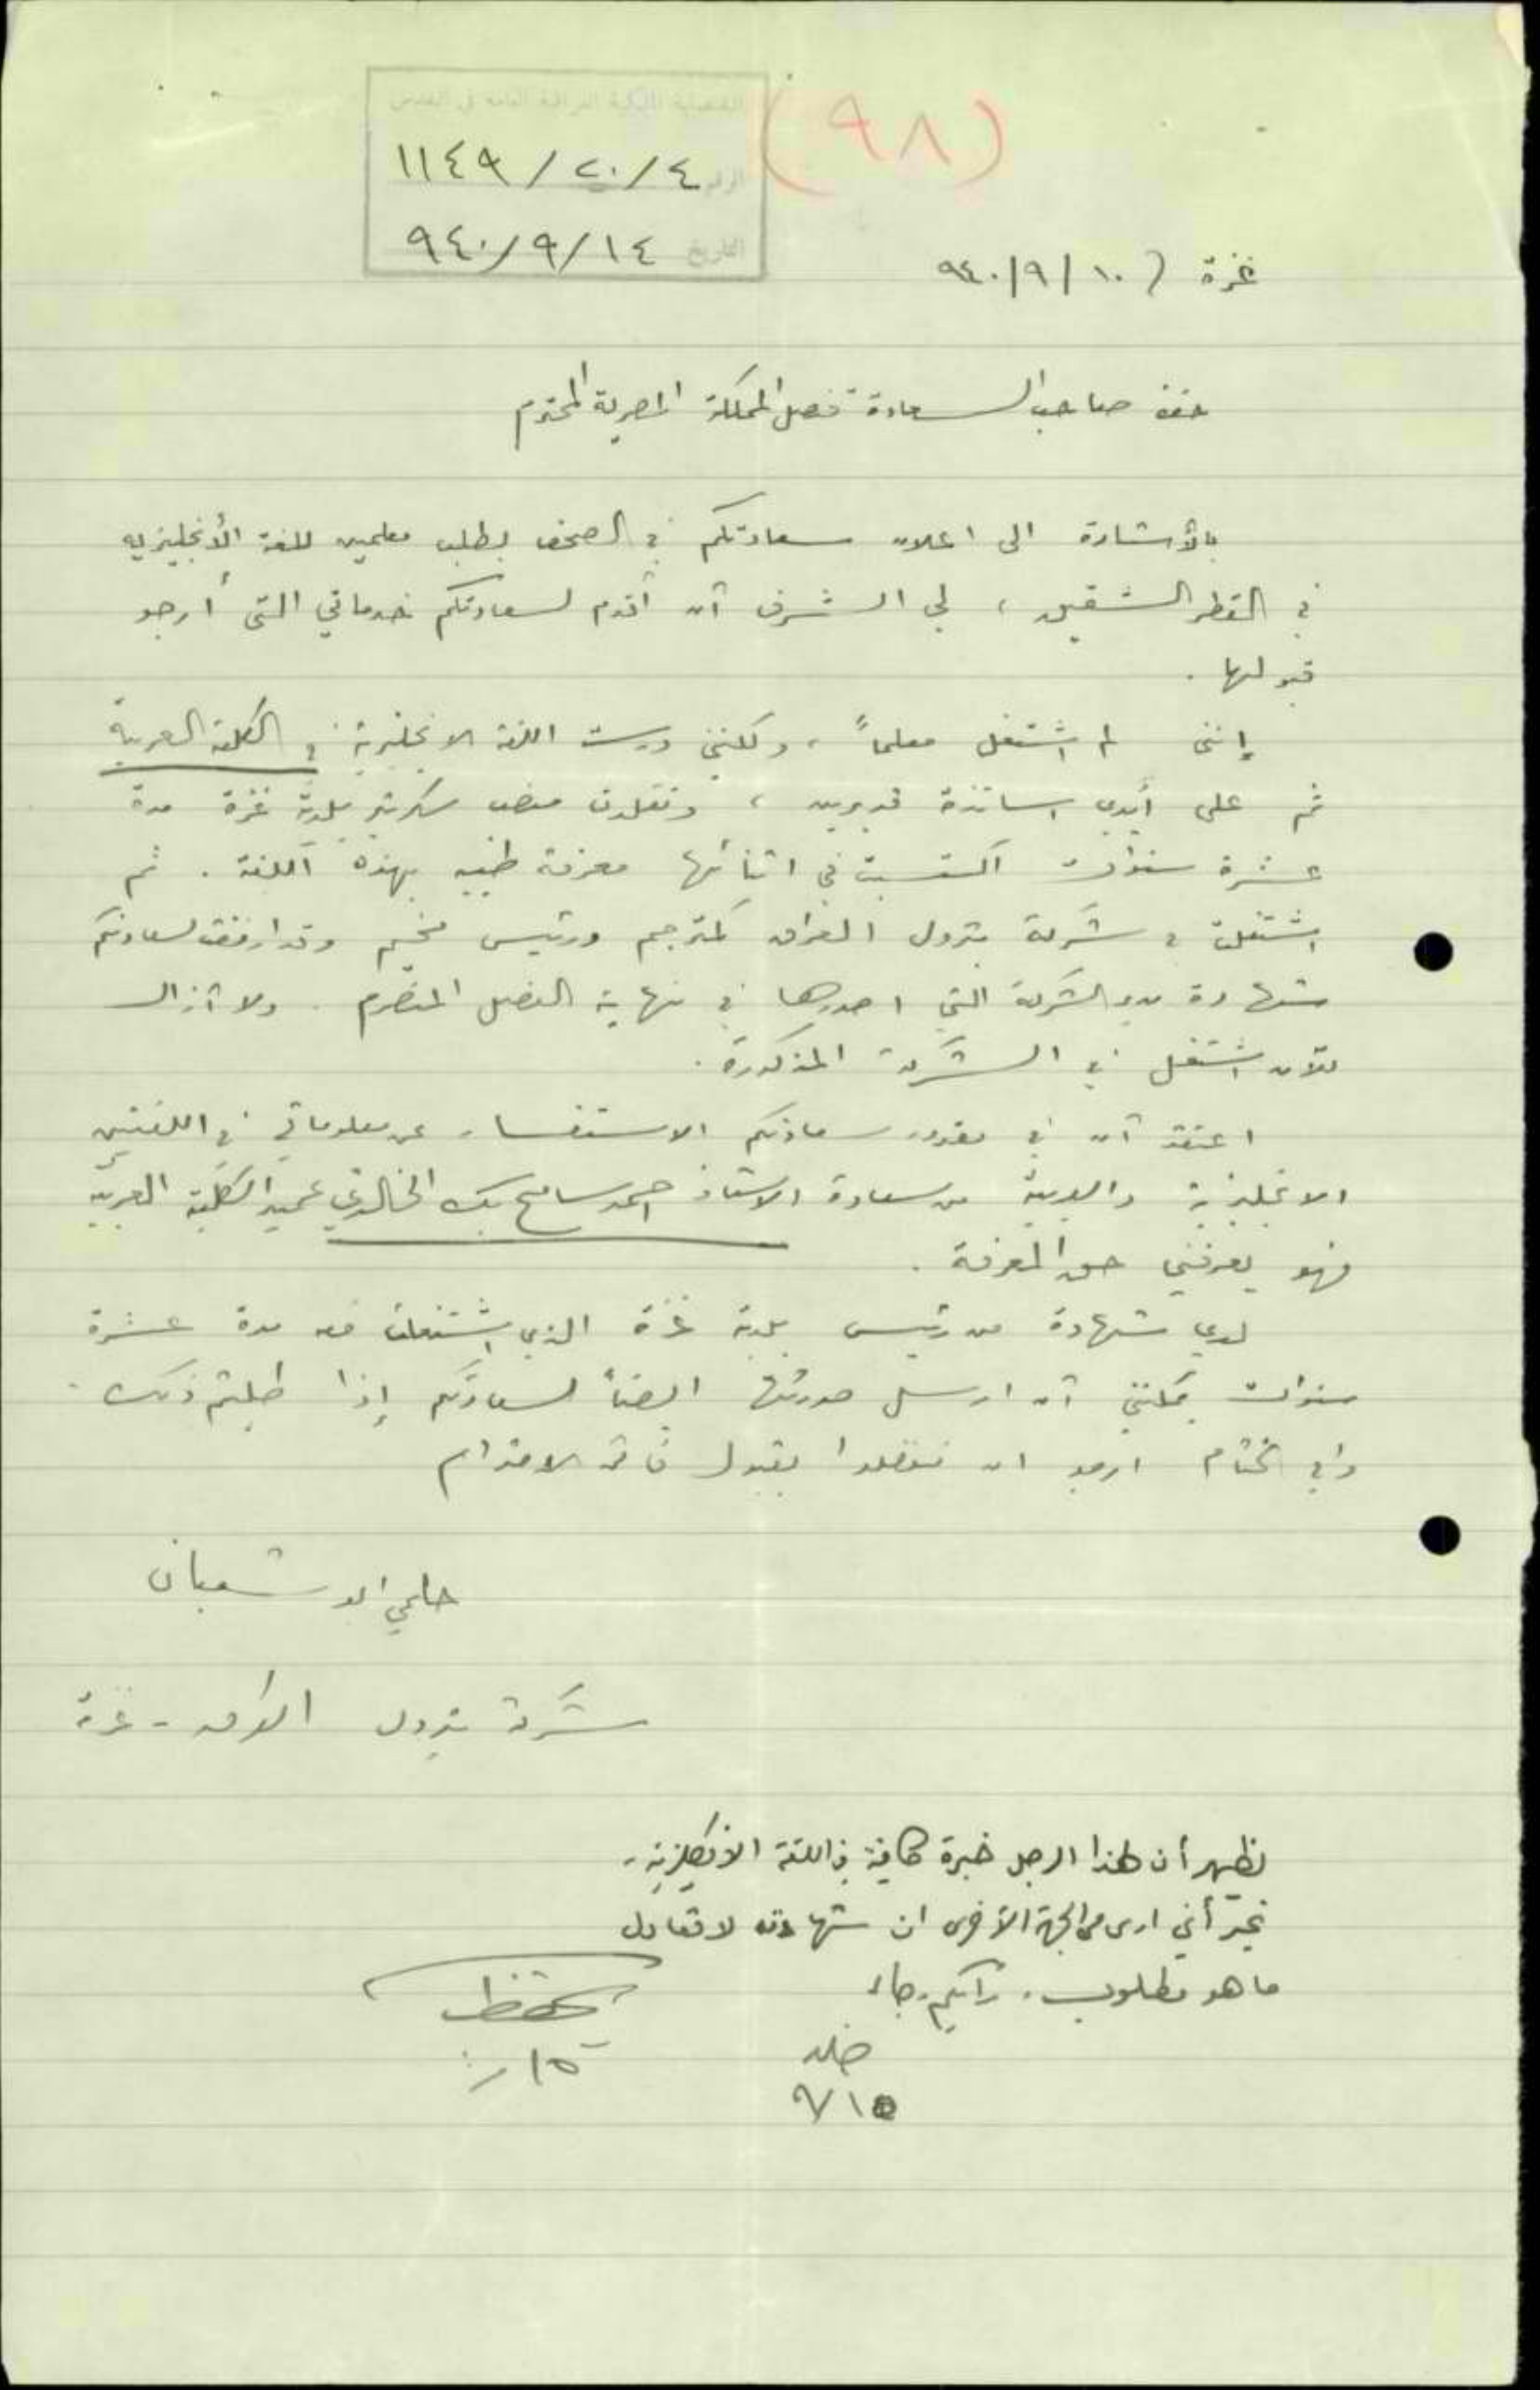 (٩٨)
القنصلية الملكية العراقية العامة في القدس
الرقم ٤/٢٠/١١٤٩
التاريخ ١٤/٩/٩٤٠
غزة ١٠/٩/٩٤٠
حضرة صاحب السعادة قنصل المملكة المحترم
بالأشارة الى اعلان سعادتكم في الصحف بطلب معلمين للغة الأنجليزيه
في القطر الشقيق ، لي الشرف أن أقدم لسعادتكم خدماتي التى أرجو
قبولها .
إننى لم اشتغل معلماً ، ولكنني درست اللغة الانجليزية في الكلية العربية
ثم على أيدي اساتذة قديرين ، وتقلدت منصب سكرتير بلدية غزة مدة
عشرة سنوات اكتسبت في اثنائها معرفة طيبه بهذه اللغة . ثم
اشتغلت في شركة بترول العراق كمترجم ورئيس مخيم وقد ارفقت لسعادتكم
شهادة مدير الشركة التي اصدرها في نهاية الفصل المنصرم . ولا أزال
للآن اشتغل في الشركة المذكورة .
اعتقد أن في مقدور سعادتكم الاستفسار عن معلوماتي في اللغتين
الانجليزية والعربية من سعادة الاستاذ احمد سامح بك الخالدي عميد الكلية العربية
فهو يعرفني حق المعرفة .
لدي شهادة من رئيس بلدية غزة الذي اشتغلت معه مدة عشرة
سنوات يمكنني أن ارسل صورتها ايضاً لسعادتكم إذا طلبتم ذلك .
وفي الختام ارجو ان تتفضلوا بقبول فائق الاحترام
حلمي ابو شعبان
شركة بترول العراق - غزة
يظهر أن لهذا الرجل خبرة كافية في اللغة الانكليزية .
غير أني ارى من الجهة الأخرى ان شهادته لا تعادل
ما هو مطلوب . رأيكم رجاء
يحفظ
١٥
٩/١٥